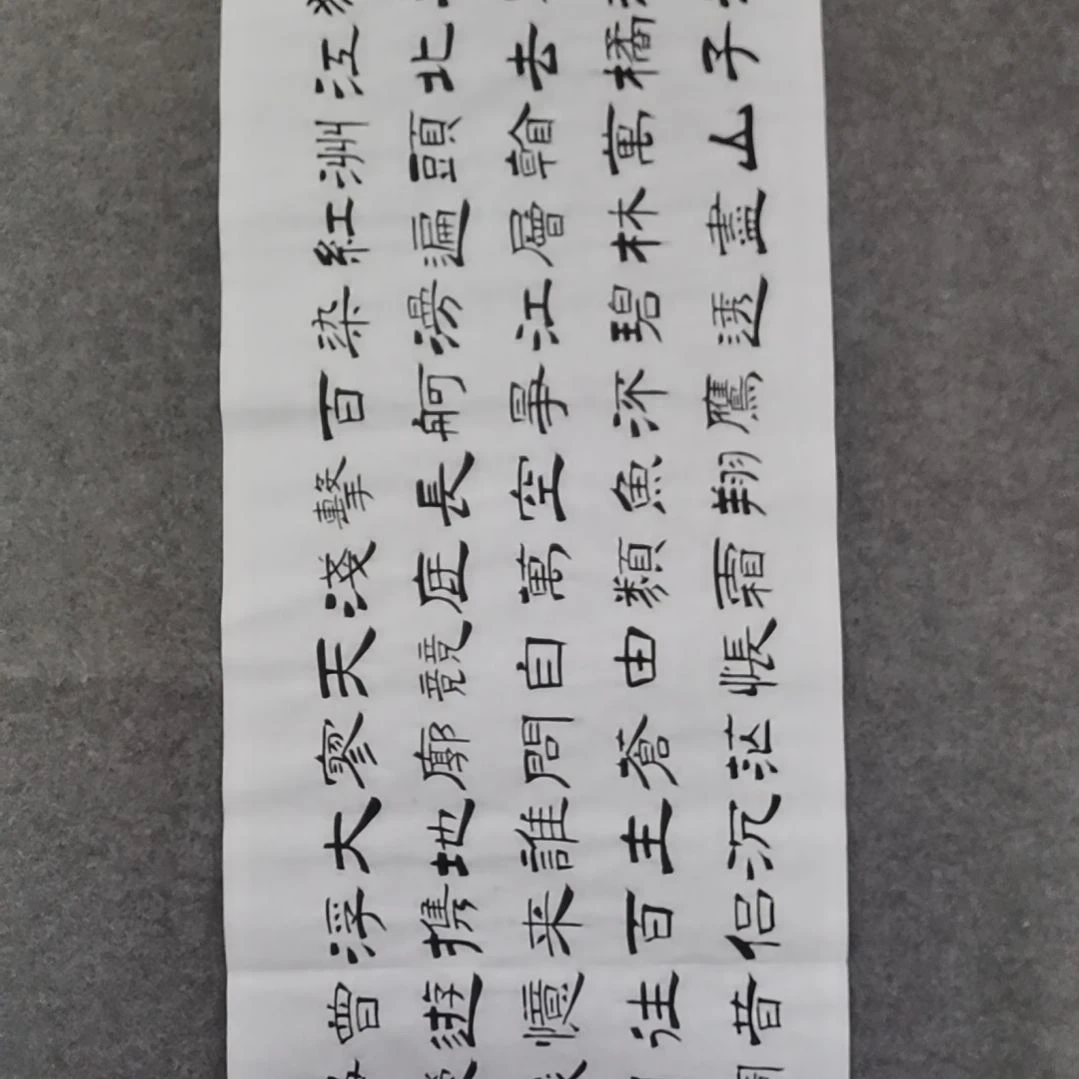 江北去橘子
洲頭看萬山
紅遍層林盡
染漫江碧透
百舸争流鷹
擊長空魚翔
淺底萬類霜
天競自由悵
寥廓問蒼茫
大地誰主沉
浮携来百侣
曾遊憶往昔